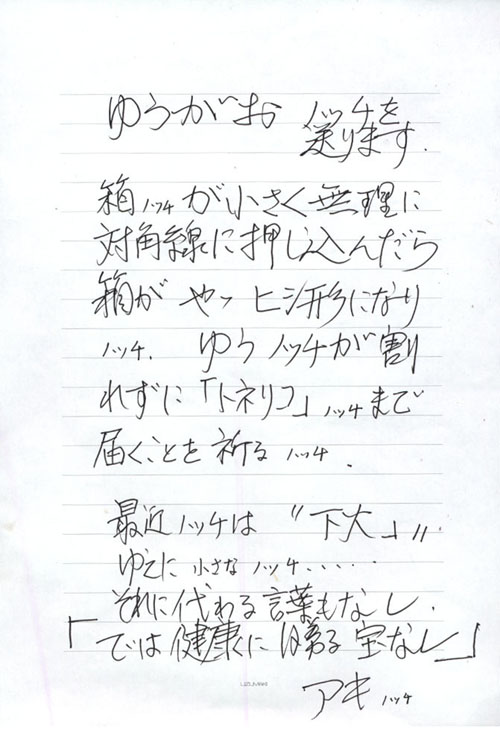 ゆうがお ノッチを
送ります.
箱ノッチが小さく無理に
対角線に押し込んだら
箱が やっ ヒシ形になり
ノッチ. ゆうノッチが割
れずに「トネリコ」ノッチまで
届くことを祈るノッチ.
最近ノッチは "下大"
ゆえに 小さな ノッチ.....
それに代わる言葉もなし.
「では健康に勝る宝なし」
アキノッチ